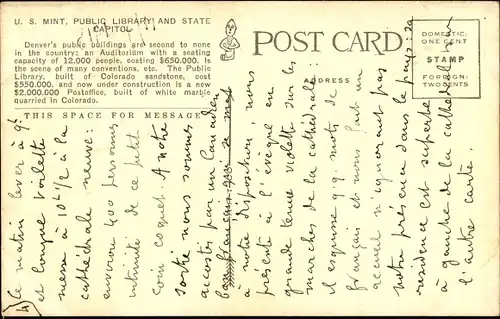 U. S. MINT, PUBLIC LIBRARY AND STATE
CAPITOL
Denver's public buildings are second to none
in the country: an Auditorium with a seating
capacity of 12,000 people, costing $650,000. Is
the scene of many conventions, etc. The Public
Library, built of Colorado sandstone, cost
$550,000, and now under construction is a new
$2,000,000 Postoffice, built of white marble
quarried in Colorado.
THIS SPACE FOR MESSAGE
POST CARD
ADDRESS
DOMESTIC
ONE CENT
STAMP
FOREIGN
TWO CENTS
4) Ce matin lever à 9h
et longue toilette
messe à 10h 1/2 à la
cathédrale neuve:
environ 400 personnes
intimité de ce petit
coin coquet. A notre
sortie nous sommes
accostés par un Canadien
français qui se met
à notre disposition; nous
présente à l'évêque en
grande tenue violette sur les
marches de la cathédrale:
Il esquisse q.q. mots de
français et nous fait un
accueil n'ignorant pas
notre présence dans le pays. Sa
résidence est superbe
à gauche de la cathédrale sur
l'autre carte.